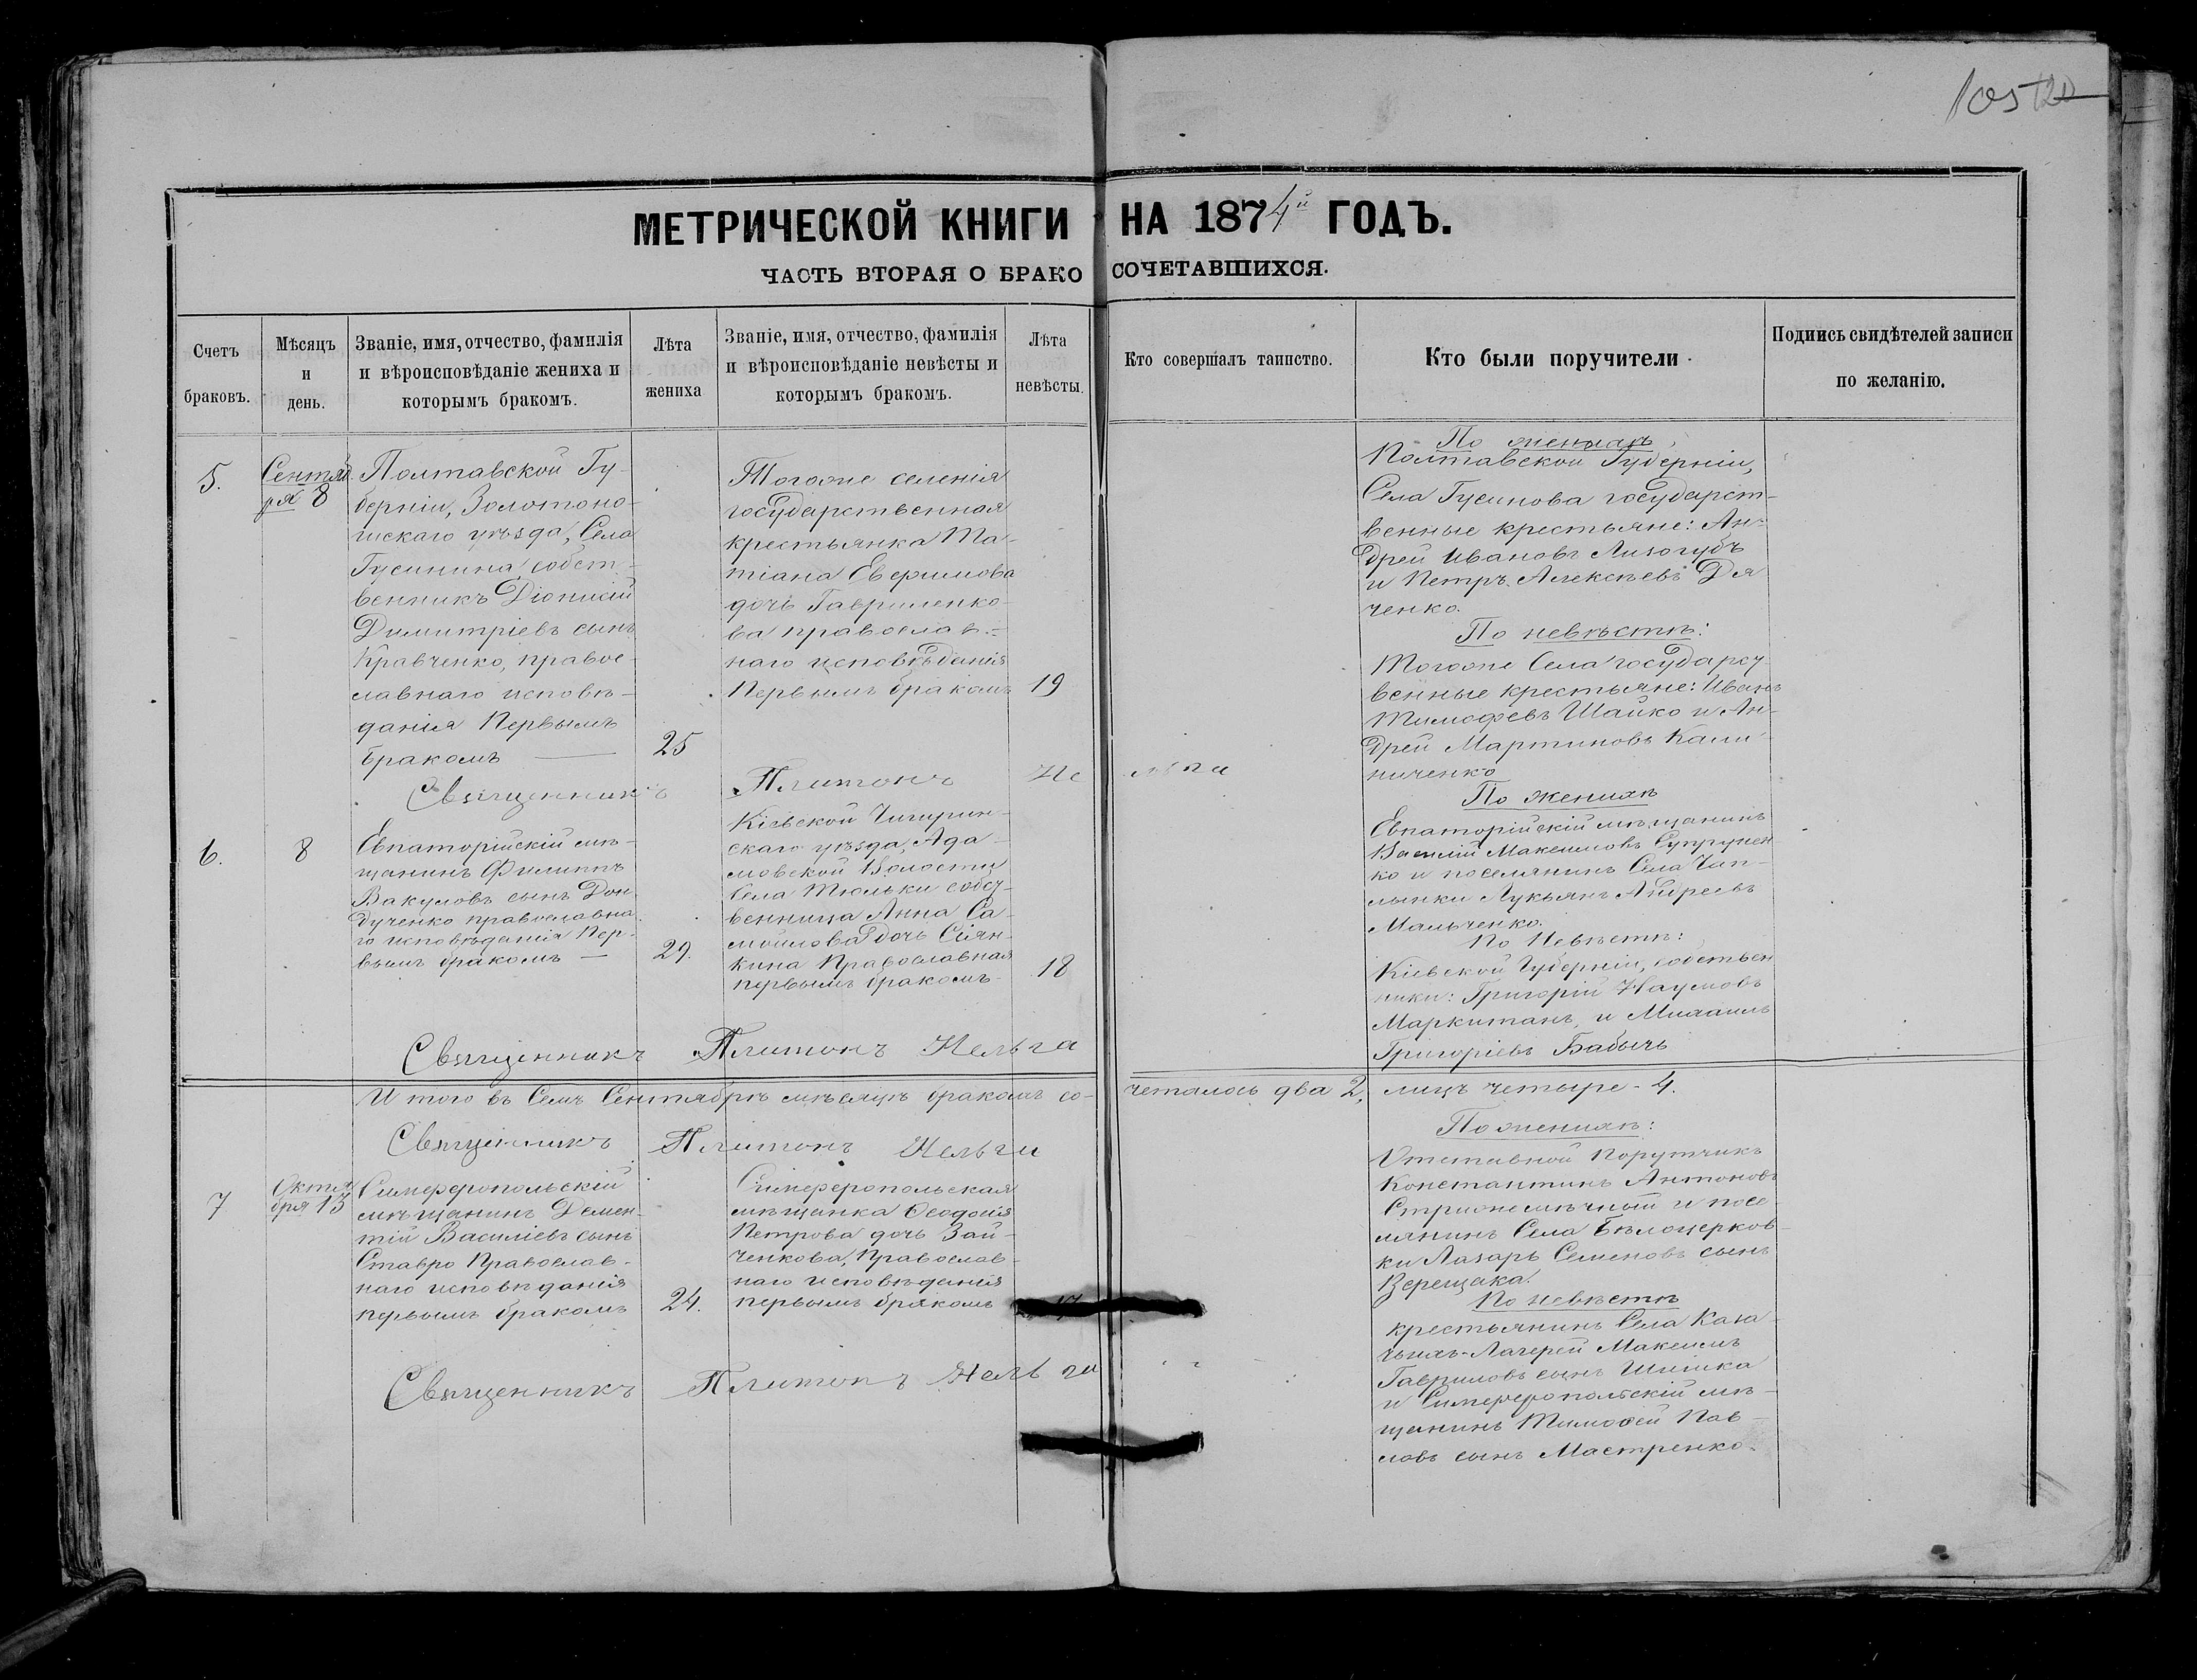 105 120
МЕТРИЧЕСКОЙ КНИГИ НА 1874й ГОДЪ.
ЧАСТЬ ВТОРАЯ О БРАКОСОЧЕТАВШИХСЯ.
Счетъ браковъ.
Мѣсяцъ и день.
Званіе, имя, отчество, фамилія и вѣроисповѣданіе жениха и которымъ бракомъ.
Лѣта жениха
Званіе, имя, отчество, фамилія и вѣроисповѣданіе невѣсты и которымъ бракомъ.
Лѣта невѣсты.
Кто совершалъ таинство.
Кто были поручители
Подпись свидѣтелей записи по желанію.
5.
Сентяб
ря 8
Полтавской Гу-
берніи, Золотоно-
шскаго уѣзда, Села
Гусинина собст-
венникъ Діонисій
Димитріевъ сынъ
Кравченко, правос-
лавнаго исповѣ-
данія Первымъ
бракомъ
25
Тогоже селенія
государственная
крестьянка Та-
тіана Евфимова
дочь Гавриленко-
ва православ-
наго исповѣданія
Первымъ бракомъ
19
По женихѣ
Полтавской Губерніи,
Села Гусинова государст-
венные крестьяне: Ан-
дрей Ивановъ Лизогубъ
и Петръ Алексѣевъ Дя
ченко.
По невѣстѣ:
Тогоже Села государсч-
венные крестьяне: Иванъ
Тимофевъ Шайко и Ан-
дрей Мартиновъ Кали-
ниченко
Священникъ Платонъ
6.
8
Евпаторійскій мѣ-
щанинъ Филиппъ
Вакуловъ сынъ Дон
дученко православна-
го исповѣданія Пер-
вымъ бракомъ
29.
Кіевской Чигирин-
скаго уѣзда, Ада-
мовской Волости
Села Тюльки собсч-
венница Анна Са-
мойлова дочь Сіян-
кина Православная
первымъ бракомъ
18
По женихѣ
Евпаторійскій мѣщанинъ
Василій Максимовъ Супрунен-
ко и поселянинъ Села Чап-
лынки Лукьянъ Андреевъ
Мальченко.
По Невѣстѣ:
Кіевской Губерніи, собствен
ники: Григорій Наумовъ
Маркитанъ, и Михаилъ
Григоріевъ Бабычь
Священникъ Платонъ Нельга
И того въ Семъ Сентябрѣ мѣсяцѣ бракомъ со-
четалось два 2, лицъ четыре - 4.
Священникъ Платонъ Нельга
7
Октя
бря 13
Симферопольскій
мѣщанинъ Демен-
тій Василіевъ сынъ
Ставро Православ-
наго исповѣданія
первымъ бракомъ
24.
Симферопольская
мѣщанка Ѳеодосія
Петрова дочь Зай-
ченкова, Православ-
наго исповѣданія
первымъ бракомъ
17
По женихѣ:
Отставной Порутчикъ
Константинъ Антоновъ
и посе-
лянинъ Села Бѣлоцерков-
ки Лазарь Семеновъ сынъ
Верещака.
По невѣстѣ
крестьянинъ Села
Максимъ
Гавриловъ сынъ Шишка
и Симферопольскій мѣ-
щанинъ Тимоѳей Пав-
ловъ сынъ Мастренко.
Священникъ Платонъ Нельга